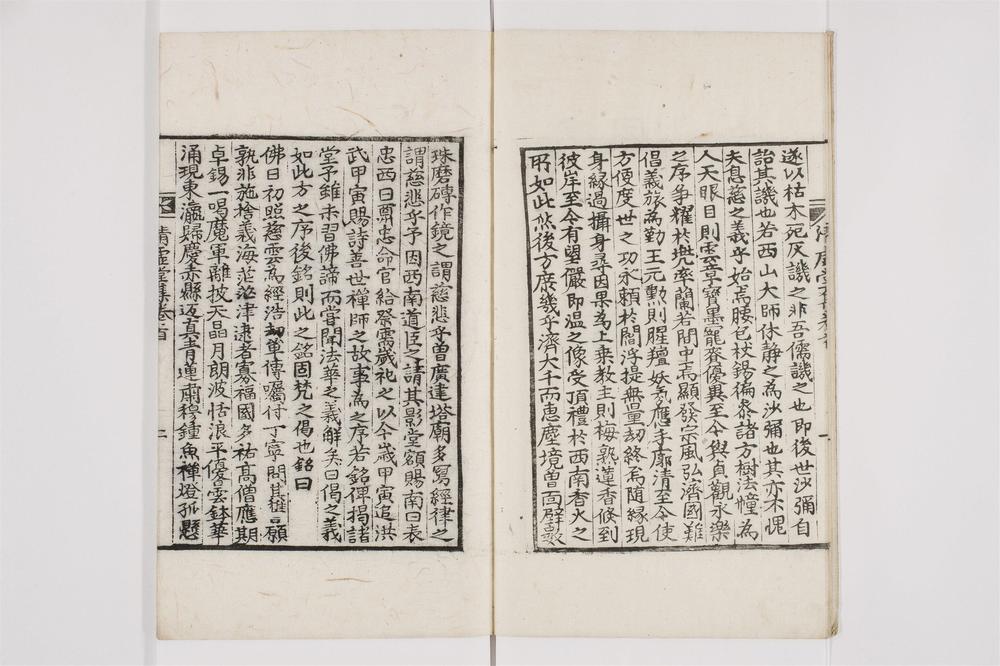 遂以枯木死灰譏之非吾儒譏之也即後世沙彌自
詒其譏也若西山大師休静之為沙彌也其亦不愧
夫息慈之義乎始焉腰包杖錫徧叅諸方樹法幢為
人天眼目則雲章寶墨寵賚優異至今與貞觀永樂
之序争耀於兠率蘭若間中焉顯發宗風弘濟國難
倡義旅為勤王元勳則腥羶妖氛應手廓清至今使
方便度世之功永頼於閻浮提無量劫終焉随緣現
身緣過攝身尋因果為上乗教主則梅熟蓮香倐到
彼岸至今有望儼即温之像受頂禮於西南香火之
所如此然後方庶幾乎濟大千而惠塵境曽面壁數
珠磨磚作鏡之謂慈悲乎曽廣建塔廟多寫經律之
謂慈悲乎予因西南道臣之請其影堂額賜南曰表
忠西曰酬忠命官給祭需歲祀之以今歲甲寅追洪
武甲寅賜詩善世禅師之故事為之序若銘俾揭諸
堂予雖未習佛諦而甞聞法華之義解矣曰偈之義
如此方之序後銘則此之銘固梵之偈也銘曰
佛日初照慈雲為經浩劫單傳囑付丁寧問其權願
孰非施捨義海茫茫津逮者寡福國多祐高僧應期
卓錫一喝魔軍離披天晶月朗波恬浪平優曇鉢華
涌現東瀛歸慶赤縣迈真青蓮肅穆鍾魚禅燈孤懸
清虚堂集卷首
二